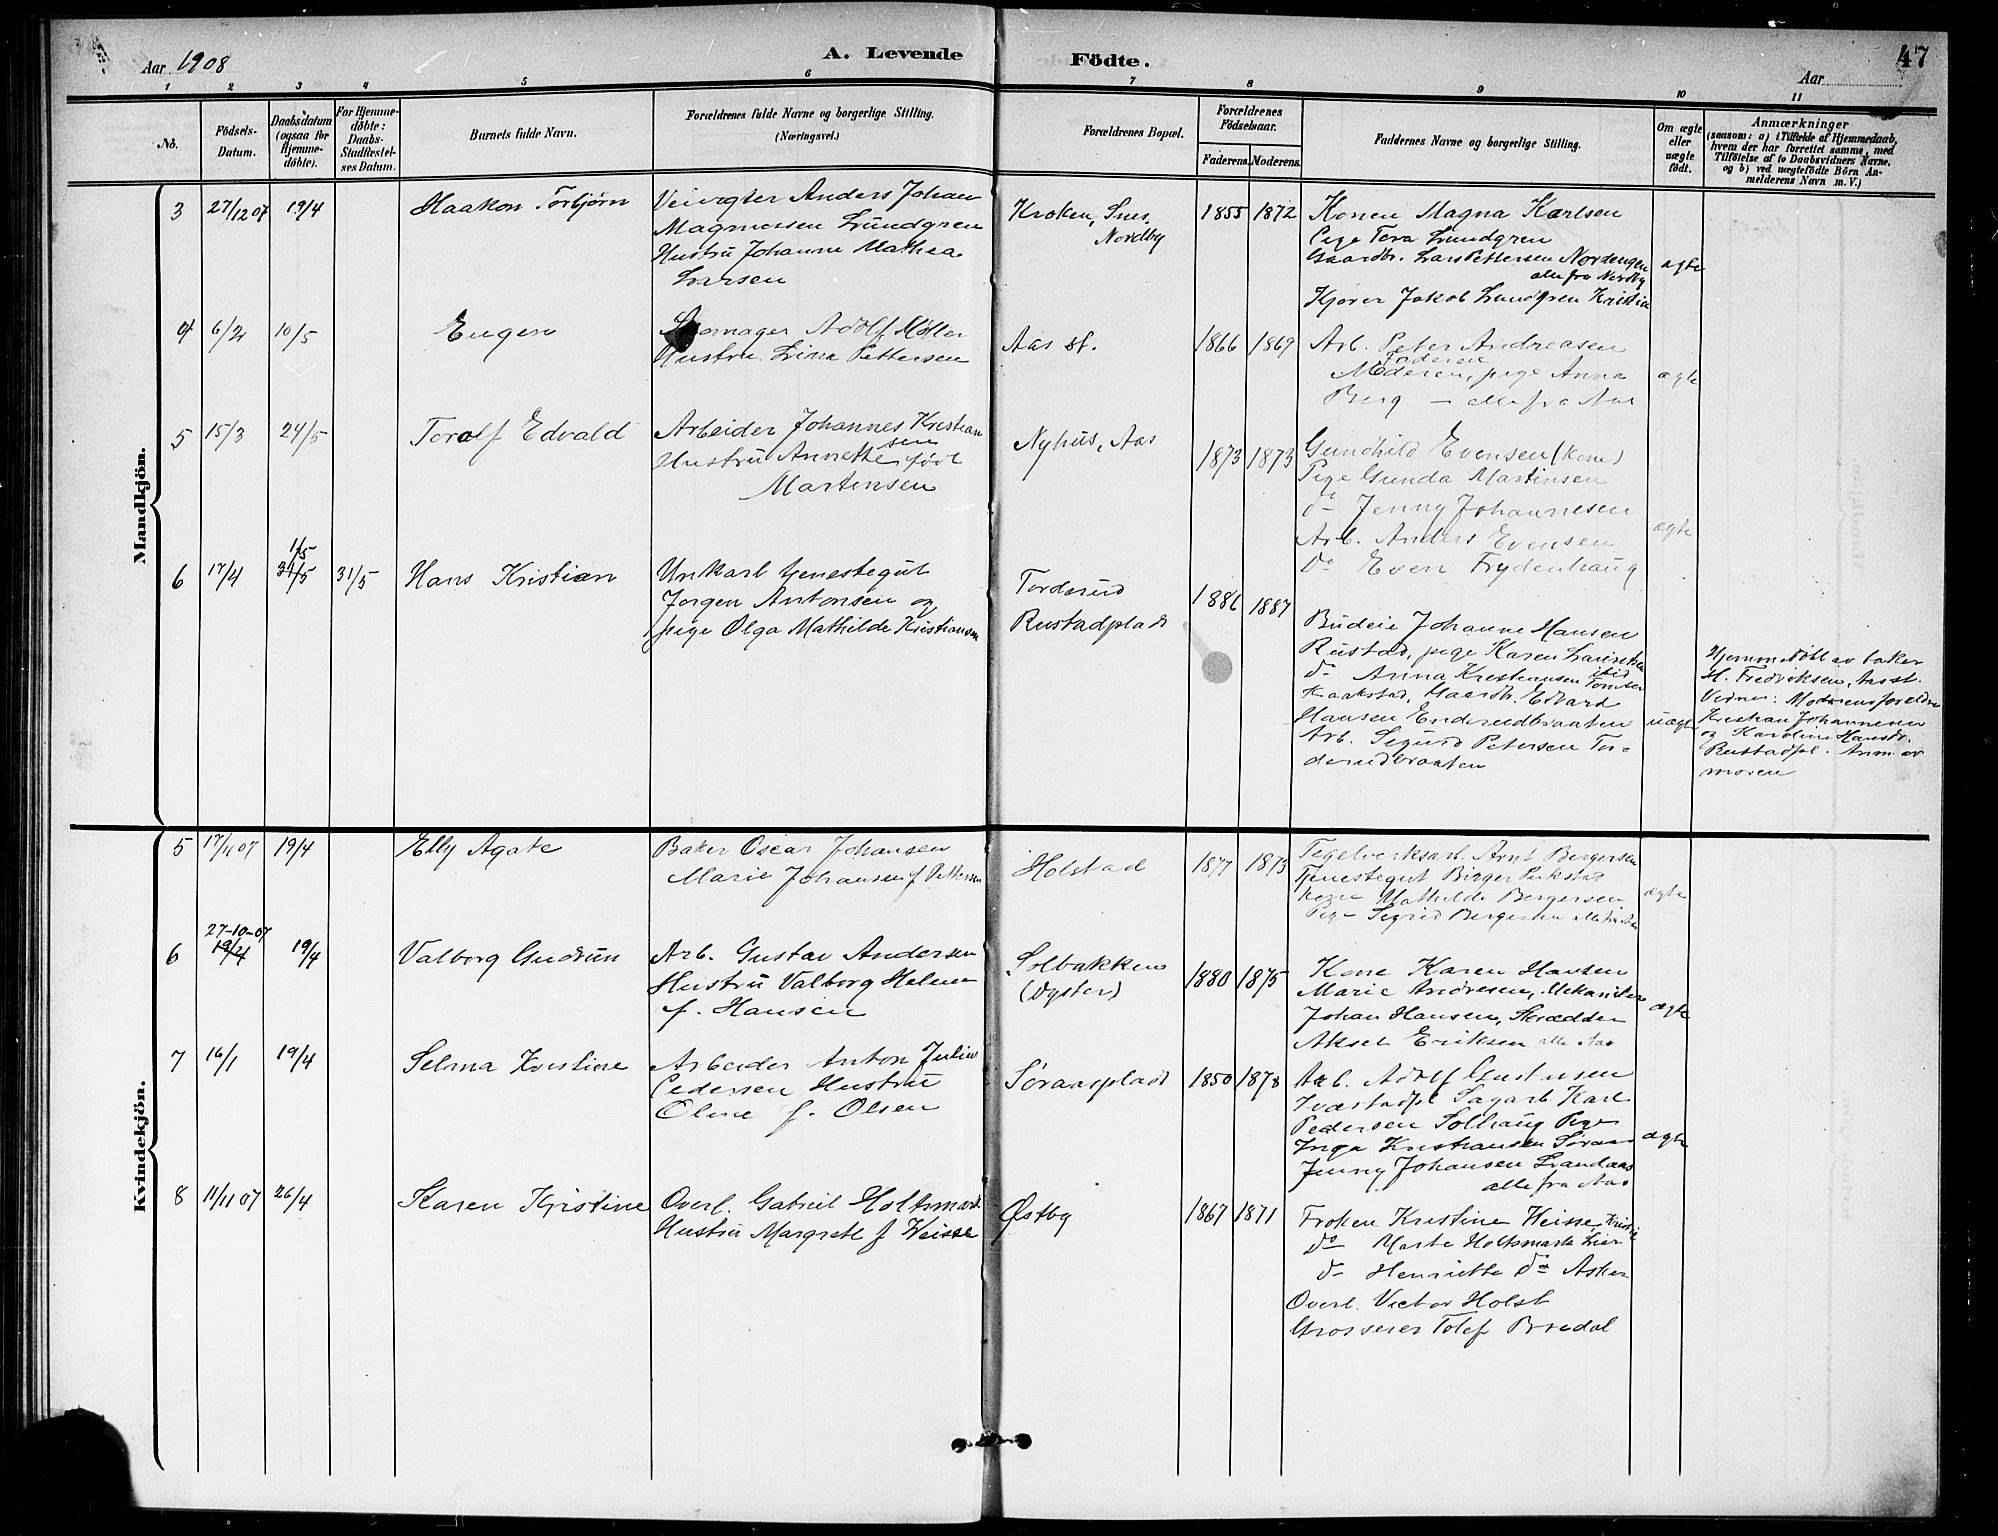 Aar 1908
A. Levende Födte.
47
Aar
1 2 3 4 5 6 7 8 9 10 11
No.
Födsels-Datum.
Daabsdatum (ogsaa for Hjemme-döbte).
For Hjemme-döbte: Daabs-Stadfæstel-ses Datum.
Barnets fulde Navn.
Forældrenes fulde Navne og borgerlige Stilling. (Næringsvei.)
Forældrenes Bopæl.
Forældrenes Födselsaar.
Faderens. Moderens.
Faddernes Navne og borgerlige Stilling.
Om ægte eller uægte födt.
Anmærkninger
(saasom: a) i Tilfælde af Hjemmedaab, hvem der har forrettet samme, med Tilföielse af to Daabsvidners Navne. og b) ved uægtefödte Börn An-melderens Navn m. V.)
Mandkjön.
3 27/12 07 19/4 Haakon Torbjørn
Veivogter Anders Johan
Magnussen Lundgren
Hustru Johanne Mathea
Larsen
Kroken, Snes,
Nordby
1855 1872
Konen Magna Karlsen
Pige Tora Lundgren
Gaardbr. Lars Pettersen Nordengen
alle fra Nordby
Kjører Jakob Lundgren Kristia
ægte
4 6/2 10/5 Eugen
Skomager Adolf Møller
Hustru Lina Pettersen
Aas st.
1866 1869
Arb. Peter Andreasen
Faderen
Moderen, pige Anna
Berg — alle fra Aas
ægte
5 15/3 24/5 Toralf Edvald
Arbeider Johannes Kristian
sen
Hustru Annette født
Martinsen
Nyhus, Aas
1873 1873
Gundhild Evensen (Kone)
Pige Gunda Martinsen
do Jenny Johannesen
Arb. Anders Evensen
Do Even Frydenhaug
ægte
6 17/4 1/5 31/5 31/5 Hans Kristian
Unkarl tjenestegut
Jørgen Antonsen og
pige Olga Mathilde Kristiansen
Torderud
Rustadplads
1886 1887
Budeie Johanne Hansen
Rustad, pige Karen Lauritsen
ibid
do Anna Kristiansen Tomter
Kaakstad, Gaardbr. Edvard
Hansen Enderudbraaten
Arb. Sigurd Petersen Tor-
derudbraaten
uægte
Hjemmedøbt av baker
H. Fredriksen, Aas st.
Vidner: Moderens forældre
Kristian Johannesen
og Karoline Hansdr.
Rustadpl. Anm. av
moren
Kvindekjön.
5 17/11 07 19/4 Elly Agate
Baker Oscar Johansen
Marie Johansen f. Pettersen
Holstad
1877 1873
Tegelverksarb. Arnt Bergersen
Tjenestegut Birger
Kone Mathilde Bergersen
Pige Sigrid Bergersen alle fra Aas
ægte
6 27-10-07 19/4 19/4 Valborg Gudrun
Arb. Gustav Andersen
Hustru Valborg Helene
f. Hansen
Solbakken
(Dyster)
1880 1875
Kone Karen Hansen
Marie Andresen, Mekaniker
Johan Hansen, Skrædder
Aksel Eriksen alle Aas
ægte
7 16/1 19/4 Selma Kristine
Arbeider Anton Julius
Pedersen Hustru
Oline f. Olsen
Søraasplads
1850 1878
Arb. Adolf Gustavsen
Tveistadpl Sagarb. Karl
Pedersen Solhaug Pige
Inga Kristiansen Søraas
Jenny Johansen Landaas
alle fra Aas
ægte
8 11/11 07 26/4 Karen Kristine
Overl. Gabriel Holtsmark
Hustru Margrete f Weisse
Østby
1867 1871
Frøken Kristine Weisse, Kristia
Do Marte Holtsmark Lier
do Henriette do Asker
Overl. Victor Holst
Grosserer Tolef Bredal